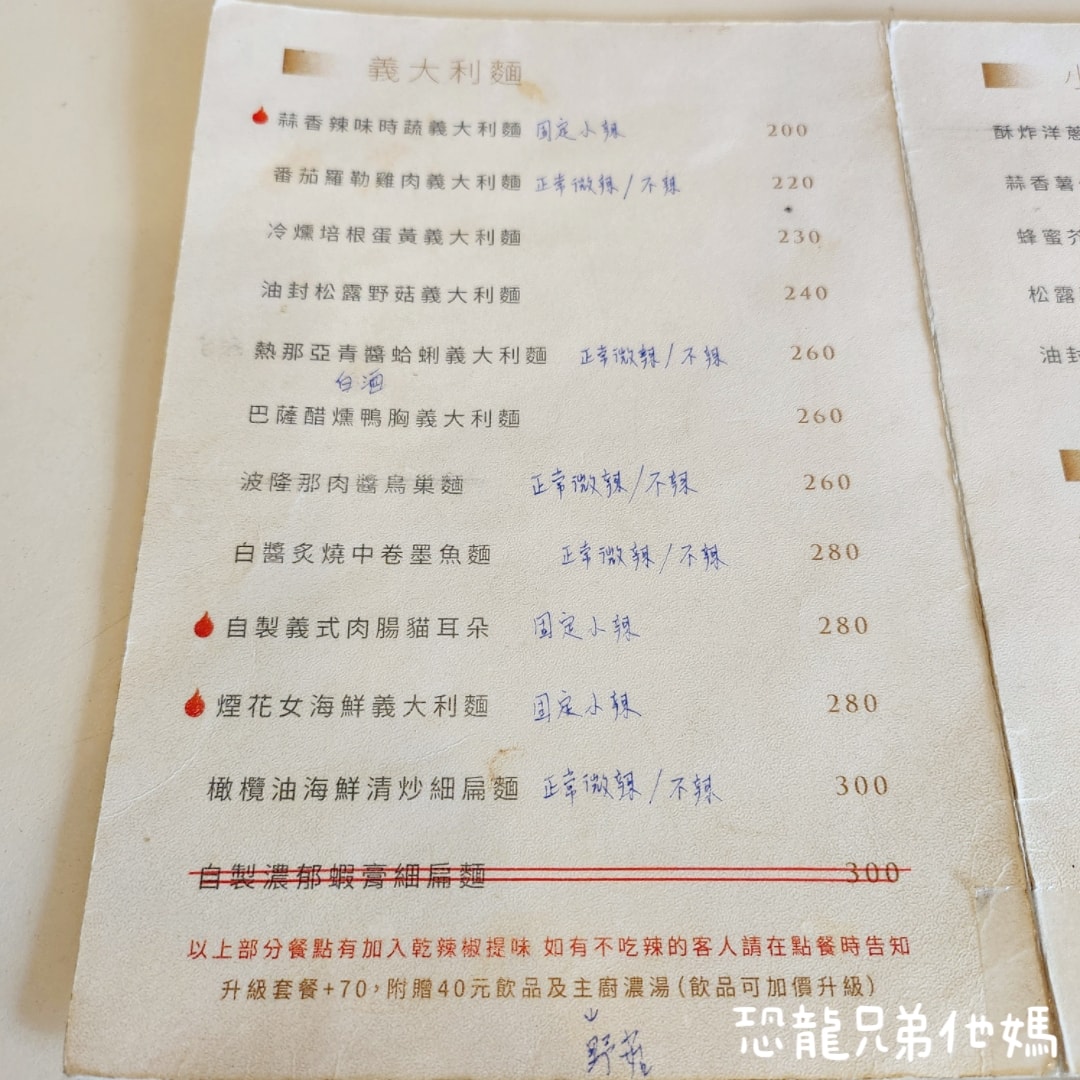 義大利麵
蒜香辣味時蔬義大利麵 固定小辣 200
番茄羅勒雞肉義大利麵 正常微辣/不辣 220
冷燻培根蛋黃義大利麵 230
油封松露野菇義大利麵 240
熱那亞青醬蛤蜊義大利麵 正常微辣/不辣 260
白酒
巴薩醋燻鴨胸義大利麵 260
波隆那肉醬鳥巢麵 正常微辣/不辣 260
白醬炙燒中卷墨魚麵 正常微辣/不辣 280
自製義式肉腸貓耳朵 固定小辣 280
煙花女海鮮義大利麵 固定小辣 280
橄欖油海鮮清炒細扁麵 正常微辣/不辣 300
自製濃郁蝦膏細扁麵 300
以上部分餐點有加入乾辣椒提味 如有不吃辣的客人請在點餐時告知
升級套餐+70,附贈40元飲品及主廚濃湯(飲品可加價升級)
野菇
小
酥炸洋蔥
蒜香薯
蜂蜜芥
松露
油封
恐龍兄弟他媽